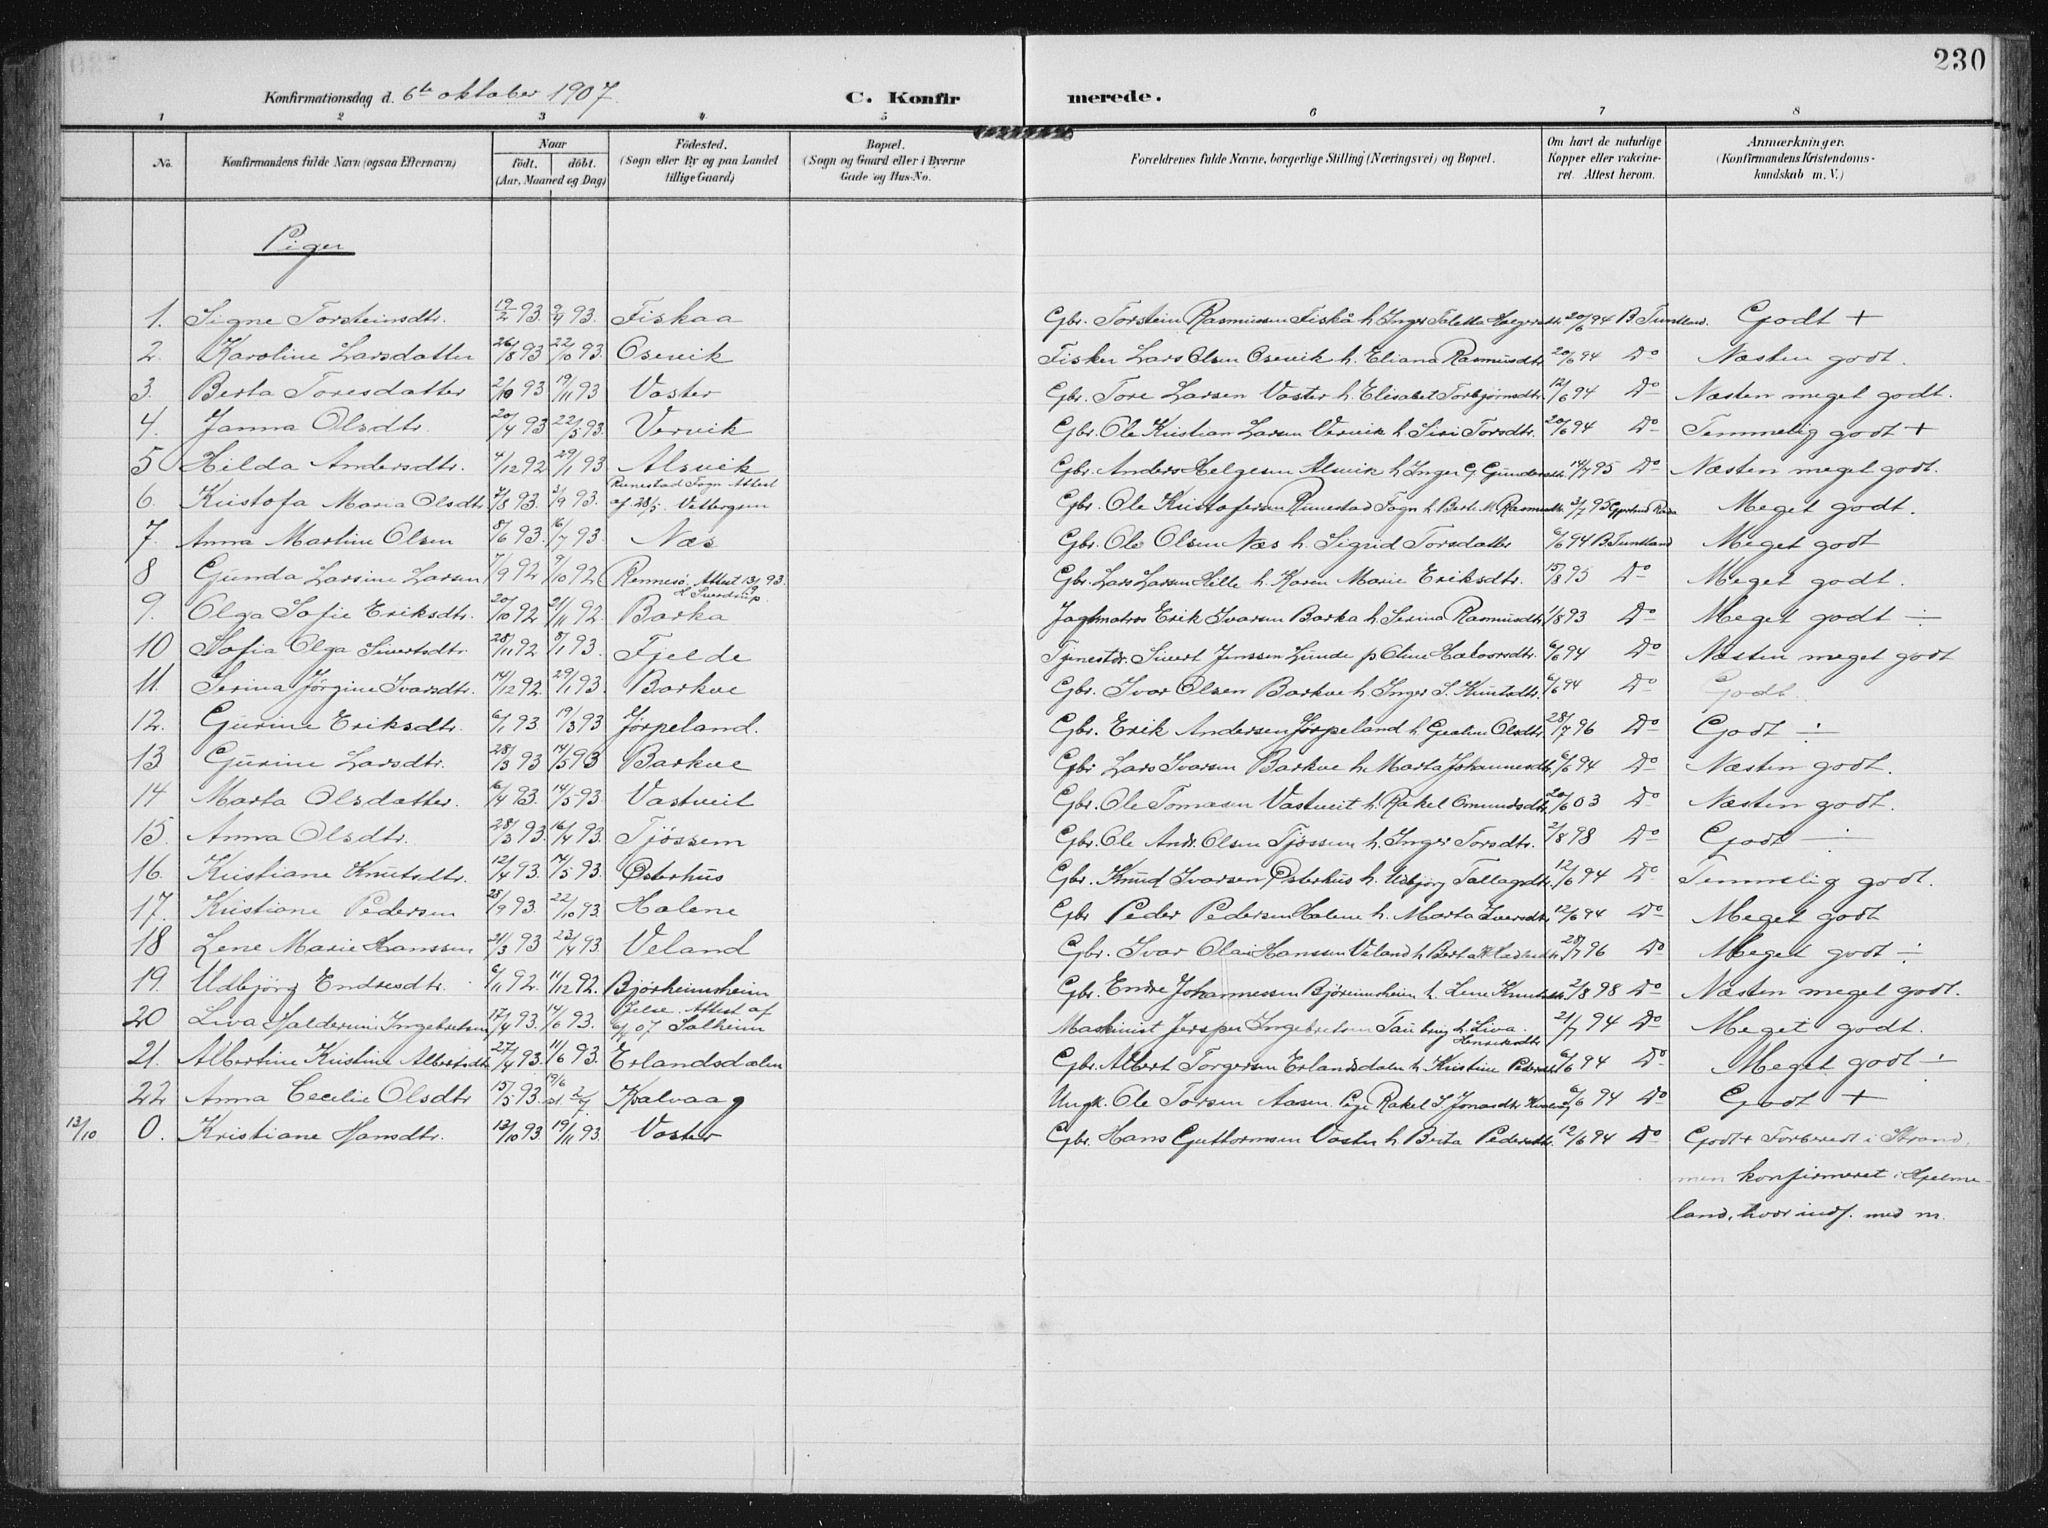 230
Konfirmationsdag d. 6te oktober 1907. C. Konfirmerede.
1 2 3 4 5 6 7 8
No. Konfirmandens fulde Navn (ogsaa Efternavn) Naar født. døbt. (Aar, Maaned og Dag) Födested. (Sogn eller By og paa Landet tillige Gaard) Bopæl. (Sogn og Gaard eller i Byerne Gade og Hus-No. Forældrenes fulde Navne, borgerlige Stilling (Næringsvei) og Bopæl. Om havt de naturlige Kopper eller vakcineret. Attest herom. Anmærkninger. (Konfirmandens Kristendomskundskab m. V.)
Piger
1. Signe Torsteinsdtr. 19/2 93. 9/4 93. Fiskaa Gbr. Torstein Rasmussen Fiskå h. Inger 20/6 94 B Tuntland. Godt +
2. Karoline Larsdatter 26/8 93 22/10 93. Osevik Fisker Lars Olsen Osevik h. Eliana Rasmusdtr. 20/6 94 Do Næsten godt.
3. Berta Toresdatter 2/10 93 19/11 93 Vaster Gbr. Tore Larsen Vaster h. Elisabet Torbjörnsdtr. 12/6 94 Do Næsten meget godt.
4. Janna Olsdtr. 20/4 93 22/5 93. Vervik Gbr. Ole Kristian Larsen Vervik h. Siri Torsdtr. 20/6 94 Do Temmelig godt +
5 Hilda Andersdtr. 4/12 92 29/1 93 Alsvik Gbr. Anders Helgesen Alsvik h. Inger G. Gundersdtr. 14/7 95 Do Næsten meget godt.
6. Kristofa Maria Olsdtr. 7/8 93. 3/9 93. Runestad Sogn Attest af 28/5. Gbr. Ole Kristofersen Runestad Sogn h. Berte M. Rasmusdtr. 3/7 95 Meget godt.
7. Anna Martine Olsen 8/6 93. 16/7 93. Næs Gbr. Ole Olsen Næs h. Sigrid Torsdatter 6/6 94 B. Tuntland Meget godt
8 Gunda Larsine Larsen 7/9 92 9/10 92 Rennesø. Attest 13/9 93. Sverdrup. Gbr. Lars Larsen Helle h. Karen Marie Eriksdtr. 15/8 95 Do Meget godt.
9. Olga Sofie Eriksdtr. 20/10 92 21/11 92. Barka Erik Ivarsen Barka h. Serina Rasmusdtr. 1/8 93 Do Meget godt ÷
10 Sofia Olga Sivertsdtr. 28/11 92 8/1 93. Fjelde Tjenestdr. Sivert Jenssen Lunde p. Oline Halvorsdtr. 6/6 94 Do Næsten meget godt
11. Serina Jørgine Ivarsdtr. 14/12 92. 29/1 93. Barkve Gbr. Ivar Olsen Barkve h. Inger S. Knutsdtr. 6/6 94 Do Godt.
12. Gurine Eriksdtr. 6/1 93 19/3 93 Jørpeland. Gbr. Erik Andersen Jørpeland h. Olsdtr. 28/7 96 Do Godt ÷
13 Gurine Larsdtr. 28/3 93 14/5 93 Barkve Gbr Lars Ivarsen Barkve h. Marta Johannesdtr. 6/6 94 Do Næsten godt.
14 Marta Olsdatter. 16/4 93. 14/5 93. Vastveit Gbr. Ole Tomasen Vastveit h. Rakel Omundsdtr. 20/6 03 Do Næsten godt.
15. Anna Olsdtr. 28/3 93. 16/4 93. Tjössem Gbr. Ole Andr. Olsen Tjössem h. Inger Torsdtr. 2/8 98 Do Godt ÷
16. Kristiane Knutsdtr. 12/4 93. 14/5 93. Østerhus Gbr. Knud Ivarsen Østerhus h. Udbjörg Tallagsdtr. 12/6 94 Do Temmelig godt.
17. Kristiane Pedersen 28/9 93. 22/10 93. Halene Gbr Peder Pedersen Halene h. Marta Iversdtr. 12/6 94 Do Meget godt
18 Lene Marie Hanssen 21/3 93 23/4 93. Veland Gbr. Ivar Olai Hanssen Veland h. Berta 28/7 96 Do Meget godt ÷
19. Udbjörg Endresdtr. 6/11 92. 11/12 92. Bjørheimsheim Gbr. Endre Johannessen Björeimsheim h. Lene Knutsdtr. 2/8 98 Do Næsten meget godt.
20 Liva Halderine Ingebretsen 17/4 93. 14/6 93. Jelse. Attest af 6/9 07 Salheim Maskinist Jesper Ingebretsen Tau brug h. Liva Henriksdtr. 21/7 94 Do Meget godt.
21. Albertine Kristine Albertsdtr. 27/4 93. 11/6 93. Erlandsdalen Gbr. Albert Torgersen Erlandsdalen h. Kristine Pedersdtr. 6/6 94 Do Meget godt ÷
22 Anna Cecilie Olsdtr 15/5 93. 19/6 st 2/7 Kvalvaag Ungk. Ole Torsen Aasen Pige Rakel S. Jonasdtr. 6/6 94 Do Godt +
13/10 0. Kristiane Hansdtr. 13/10 93. 19/11 93. Vaster Gbr. Hans Guttormsen Vaster h. Berta Pedersdtr. 12/6 94 Do Godt + Forberedt i Strand,
men konfirmeret i Hjelme-
land, hvor indf. med n.